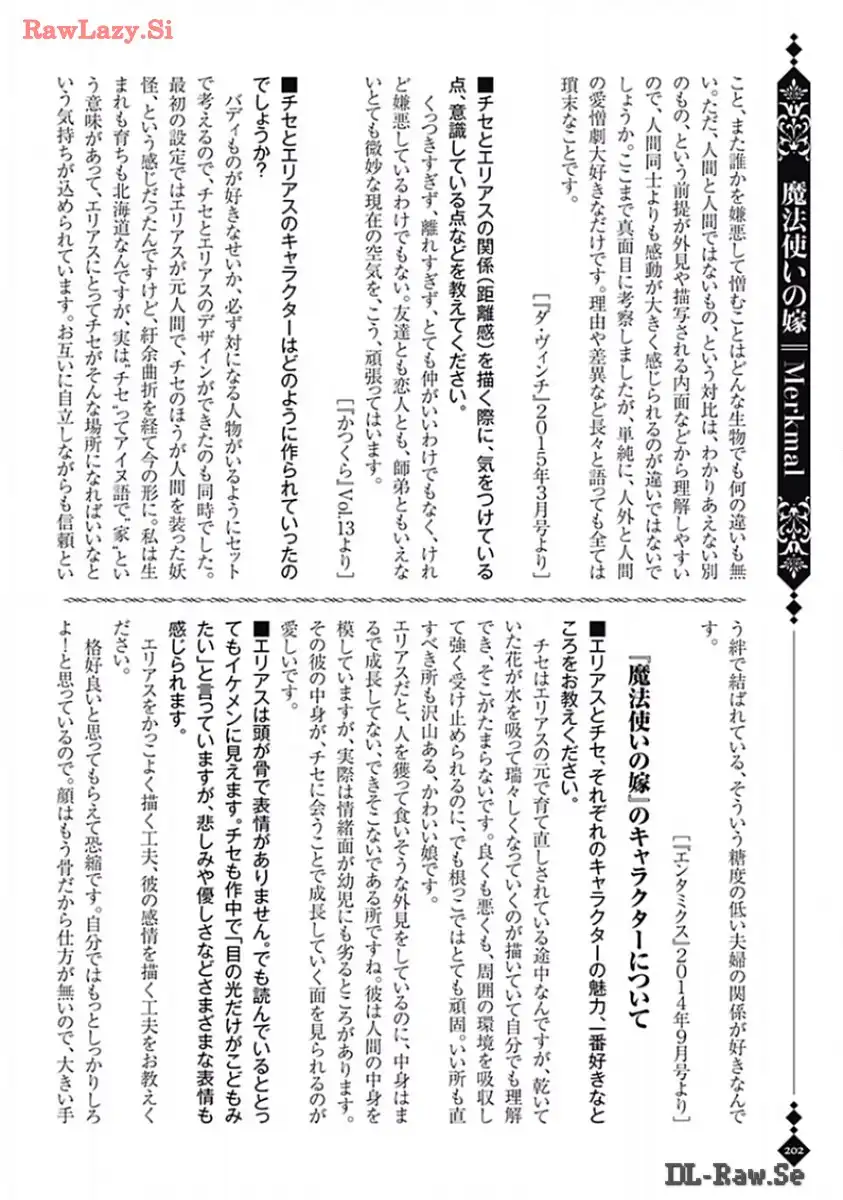 RawLazy.Si
魔法使いの嫁 || Merkmal
こと、また誰かを嫌悪して憎むことはどんな生物でも何の違いも無
い。ただ、人間と人間ではないもの、という対比は、わかりあえない別
のもの、という前提が外見や描写される内面などから理解しやすい
ので、人間同士よりも感動が大きく感じられるのが違いではないで
しょうか。ここまで真面目に考察しましたが、単純に、人外と人間
の愛憎劇大好きなだけです。理由や差異など長々と語っても全ては
瑣末なことです。
[『ダ・ヴィンチ』2015年3月号より]
■チセとエリアスの関係(距離感)を描く際に、気をつけている
点、意識している点などを教えてください。
くっつきすぎず、離れすぎず、とても仲がいいわけでもなく、けれ
ど嫌悪しているわけでもない。友達とも恋人とも、師弟ともいえな
いとても微妙な現在の空気を、こう、頑張ってはいます。
[『かつくら』Vol.13より]
■チセとエリアスのキャラクターはどのように作られていったの
でしょうか?
バディものが好きなせいか、必ず対になる人物がいるようにセット
で考えるので、チセとエリアスのデザインができたのも同時でした。
最初の設定ではエリアスが元人間で、チセのほうが人間を装った妖
怪、という感じだったんですけど、紆余曲折を経て今の形に。私は生
まれも育ちも北海道なんですが、実は“チセ”ってアイヌ語で“家”とい
う意味があって、エリアスにとってチセがそんな場所になればいいなと
いう気持ちが込められています。お互いに自立しながらも信頼とい
う絆で結ばれている、そういう糖度の低い夫婦の関係が好きなんで
す。
[『エンタミクス』2014年9月号より]
『魔法使いの嫁』のキャラクターについて
■エリアスとチセ、それぞれのキャラクターの魅力、一番好きなと
ころをお教えください。
チセはエリアスの元で育て直しされている途中なんですが、乾いて
いた花が水を吸って瑞々しくなっていくのが描いていて自分でも理解
でき、そこがたまらないです。良くも悪くも、周囲の環境を吸収し
て強く受け止められるのに、でも根っこではとても頑固。いい所も直
すべき所も沢山ある、かわいい娘です。
エリアスだと、人を獲って食いそうな外見をしているのに、中身はま
るで成長してない、できそこないである所ですね。彼は人間の中身を
模していますが、実際は情緒面が幼児にも劣るところがあります。
その彼の中身が、チセに会うことで成長していく面を見られるのが
愛しいです。
■エリアスは頭が骨で表情がありません。でも読んでいるととっ
てもイケメンに見えます。チセも作中で「目の光だけがこどもみ
たい」と言っていますが、悲しみや優しさなどさまざまな表情も
感じられます。
エリアスをかっこよく描く工夫、彼の感情を描く工夫をお教えく
ださい。
格好良いと思ってもらえて恐縮です。自分ではもっとしっかりしろ
よ!と思っているので。顔はもう骨だから仕方が無いので、大きい手
202
DL-Raw.Se